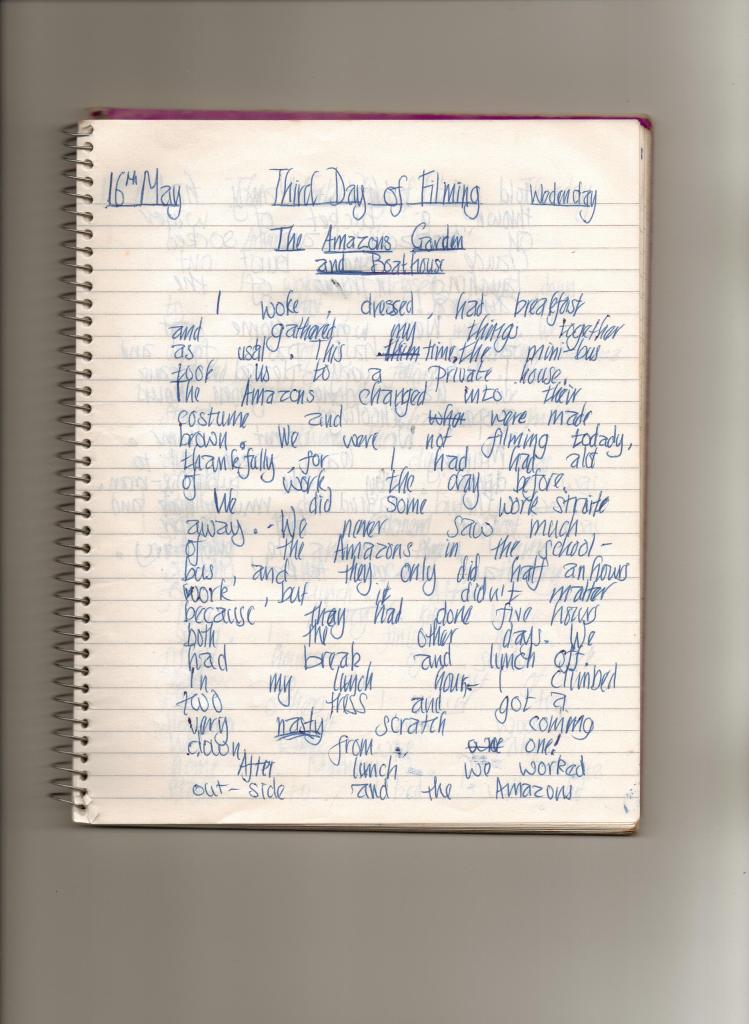 16th May Third Day of Filming Wedenday
The Amazons Garden
and Boathouse
I woke, dressed, had breakfast
and gathered my things together
as usal. This time, the mini-bus
took us to a private house.
The Amazons changed into their
costume and were made
brown. We were not filming todady,
thankfully, for I had had alot
of work the day before.
We did some work straite
away. - We never saw much
of the Amazons in the school-
bus, and they only did half an hours
work, but it didn't matter
because they had done five hours
both the other days. We
had break and lunch off.
In my lunch hour I climbed
two tress and got a
very nasty scratch coming
down from one!
After lunch we worked
out-side and the Amazons